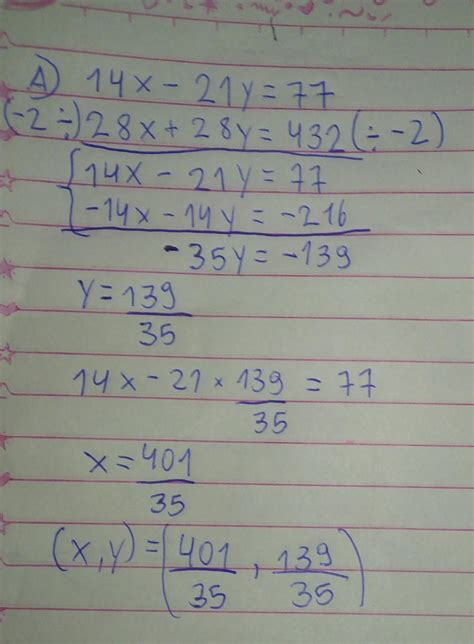 A) 14x - 21y = 77
(-2 ÷) 28x + 28y = 432 (÷ -2)
14x - 21y = 77
-14x - 14y = -216
-35y = -139
y = 139/35
14x - 21 × 139/35 = 77
x = 401/35
(x, y) = (401/35, 139/35)